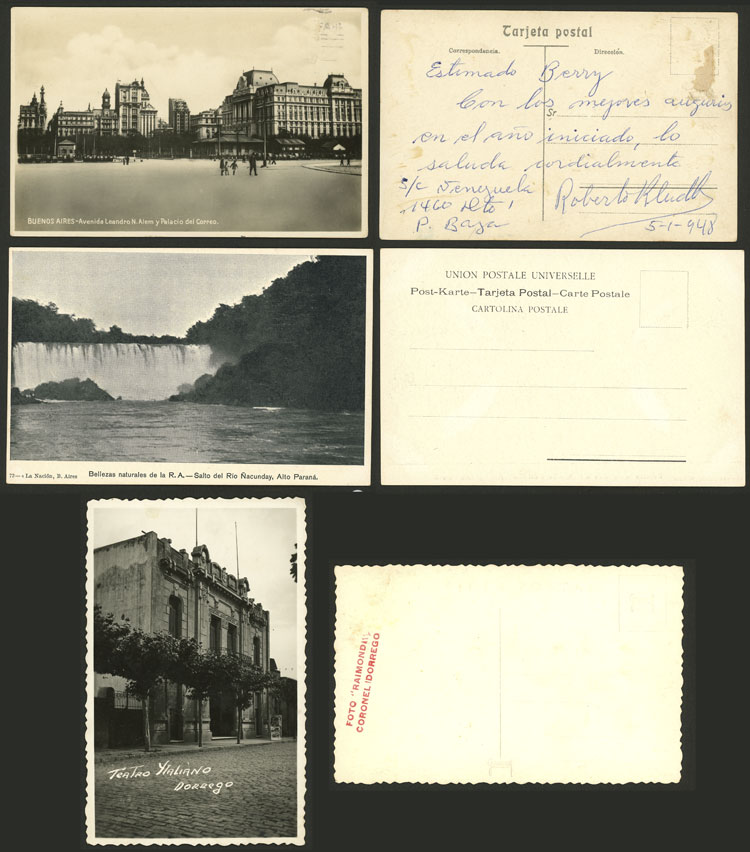 BUENOS AIRES-Avenida Leandro N. Alem y Palacio del Correo.
Tarjeta postal
Correspondencia. Dirección.
Estimado Berry
Sr.
Con los mejores augurios
en el año iniciado, lo
saluda cordialmente
s/c Venezuela
1460 Dto 1
P. Baja
Roberto
5-1-948
77-«La Nación, B. Aires
Bellezas naturales de la R.A.—Salto del Río Ñacunday, Alto Paraná.
UNION POSTALE UNIVERSELLE
Post-Karte—Tarjeta Postal—Carte Postale
CARTOLINA POSTALE
TEATRO YTALIANO
DORREGO
FOTO "RAIMONDI"
CORONEL DORREGO